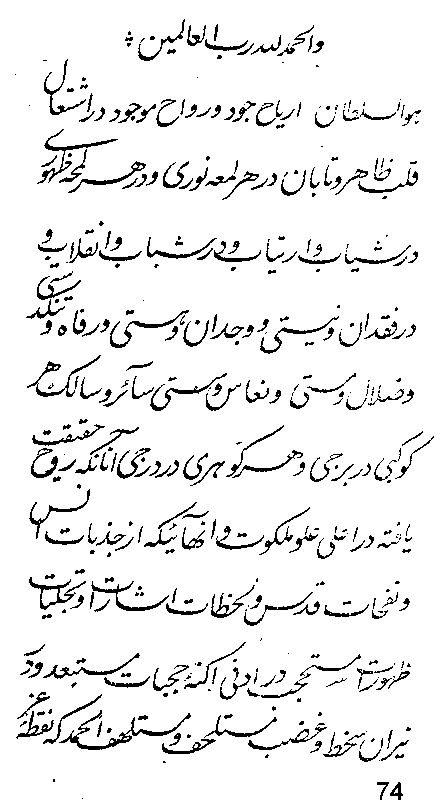 والحمد لله رب العالمین
هو السلطان اریاح جود و رواح موجود در اشتعال
قلب ظاهر و تابان در هر لمعه نوری و در هر لمحه ظهوری
در شیاب و ارتیاب و در شباب و انقلاب و
در فقدان و نیستی و وجدان و هستی و رفاه و تنگدستی
و ضلال و مستی و نعاس و سستی سائر و سالک هر
کوکبی در برجی و هر گوهری در درجی آنانکه بروح حقیقت
یافته در اعلی علو ملکوت و انهائیکه از جذبات انس
و نفحات قدس و لحظات اشارات و تجلیات
ظهورات محتجب در ادنی اکنهٔ حجبات مستبعد و در
نیران سخط و غضب ملتحف و متلهف الحمد که نقطهٔ
74